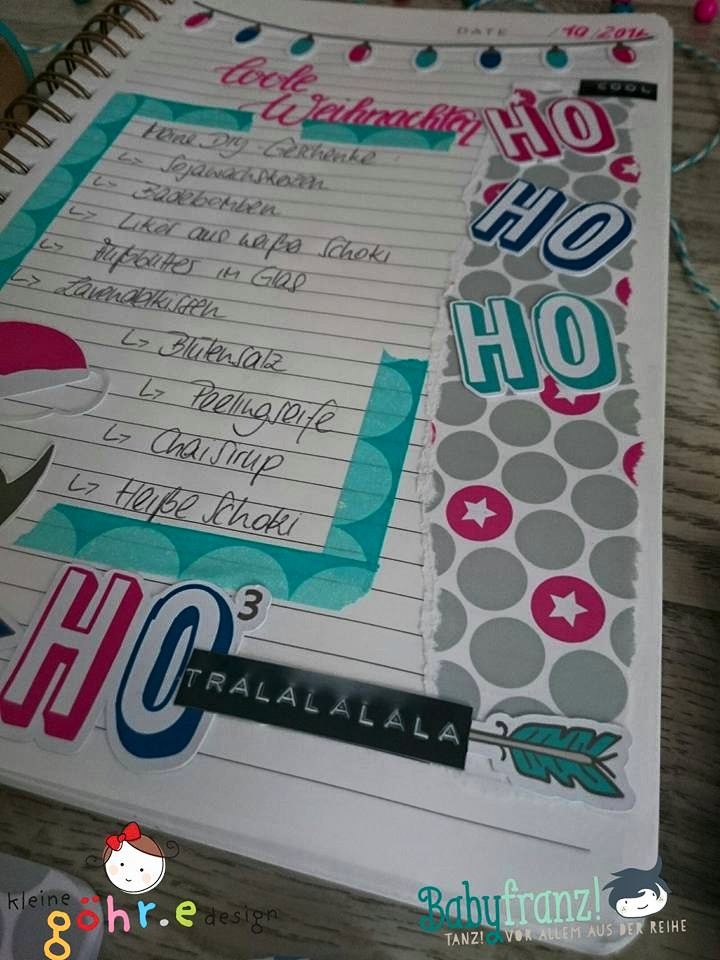 DATE /10/2016
COOL
Coole
Weihnachten
HO
HO
HO
Meine DIY-Geschenke:
↳ Sojawachskerzen
↳ Badebomben
↳ Likör aus weiße Schoki
↳ Fußbutter im Glas
↳ Lavendelkissen
↳ Blütensalz
↳ Peelingseife
↳ Chaisirup
↳ Heiße Schoki
HO³
TRALALALALA
kleine göhr.e design
Babyfranz!
TANZ! VOR ALLEM AUS DER REIHE